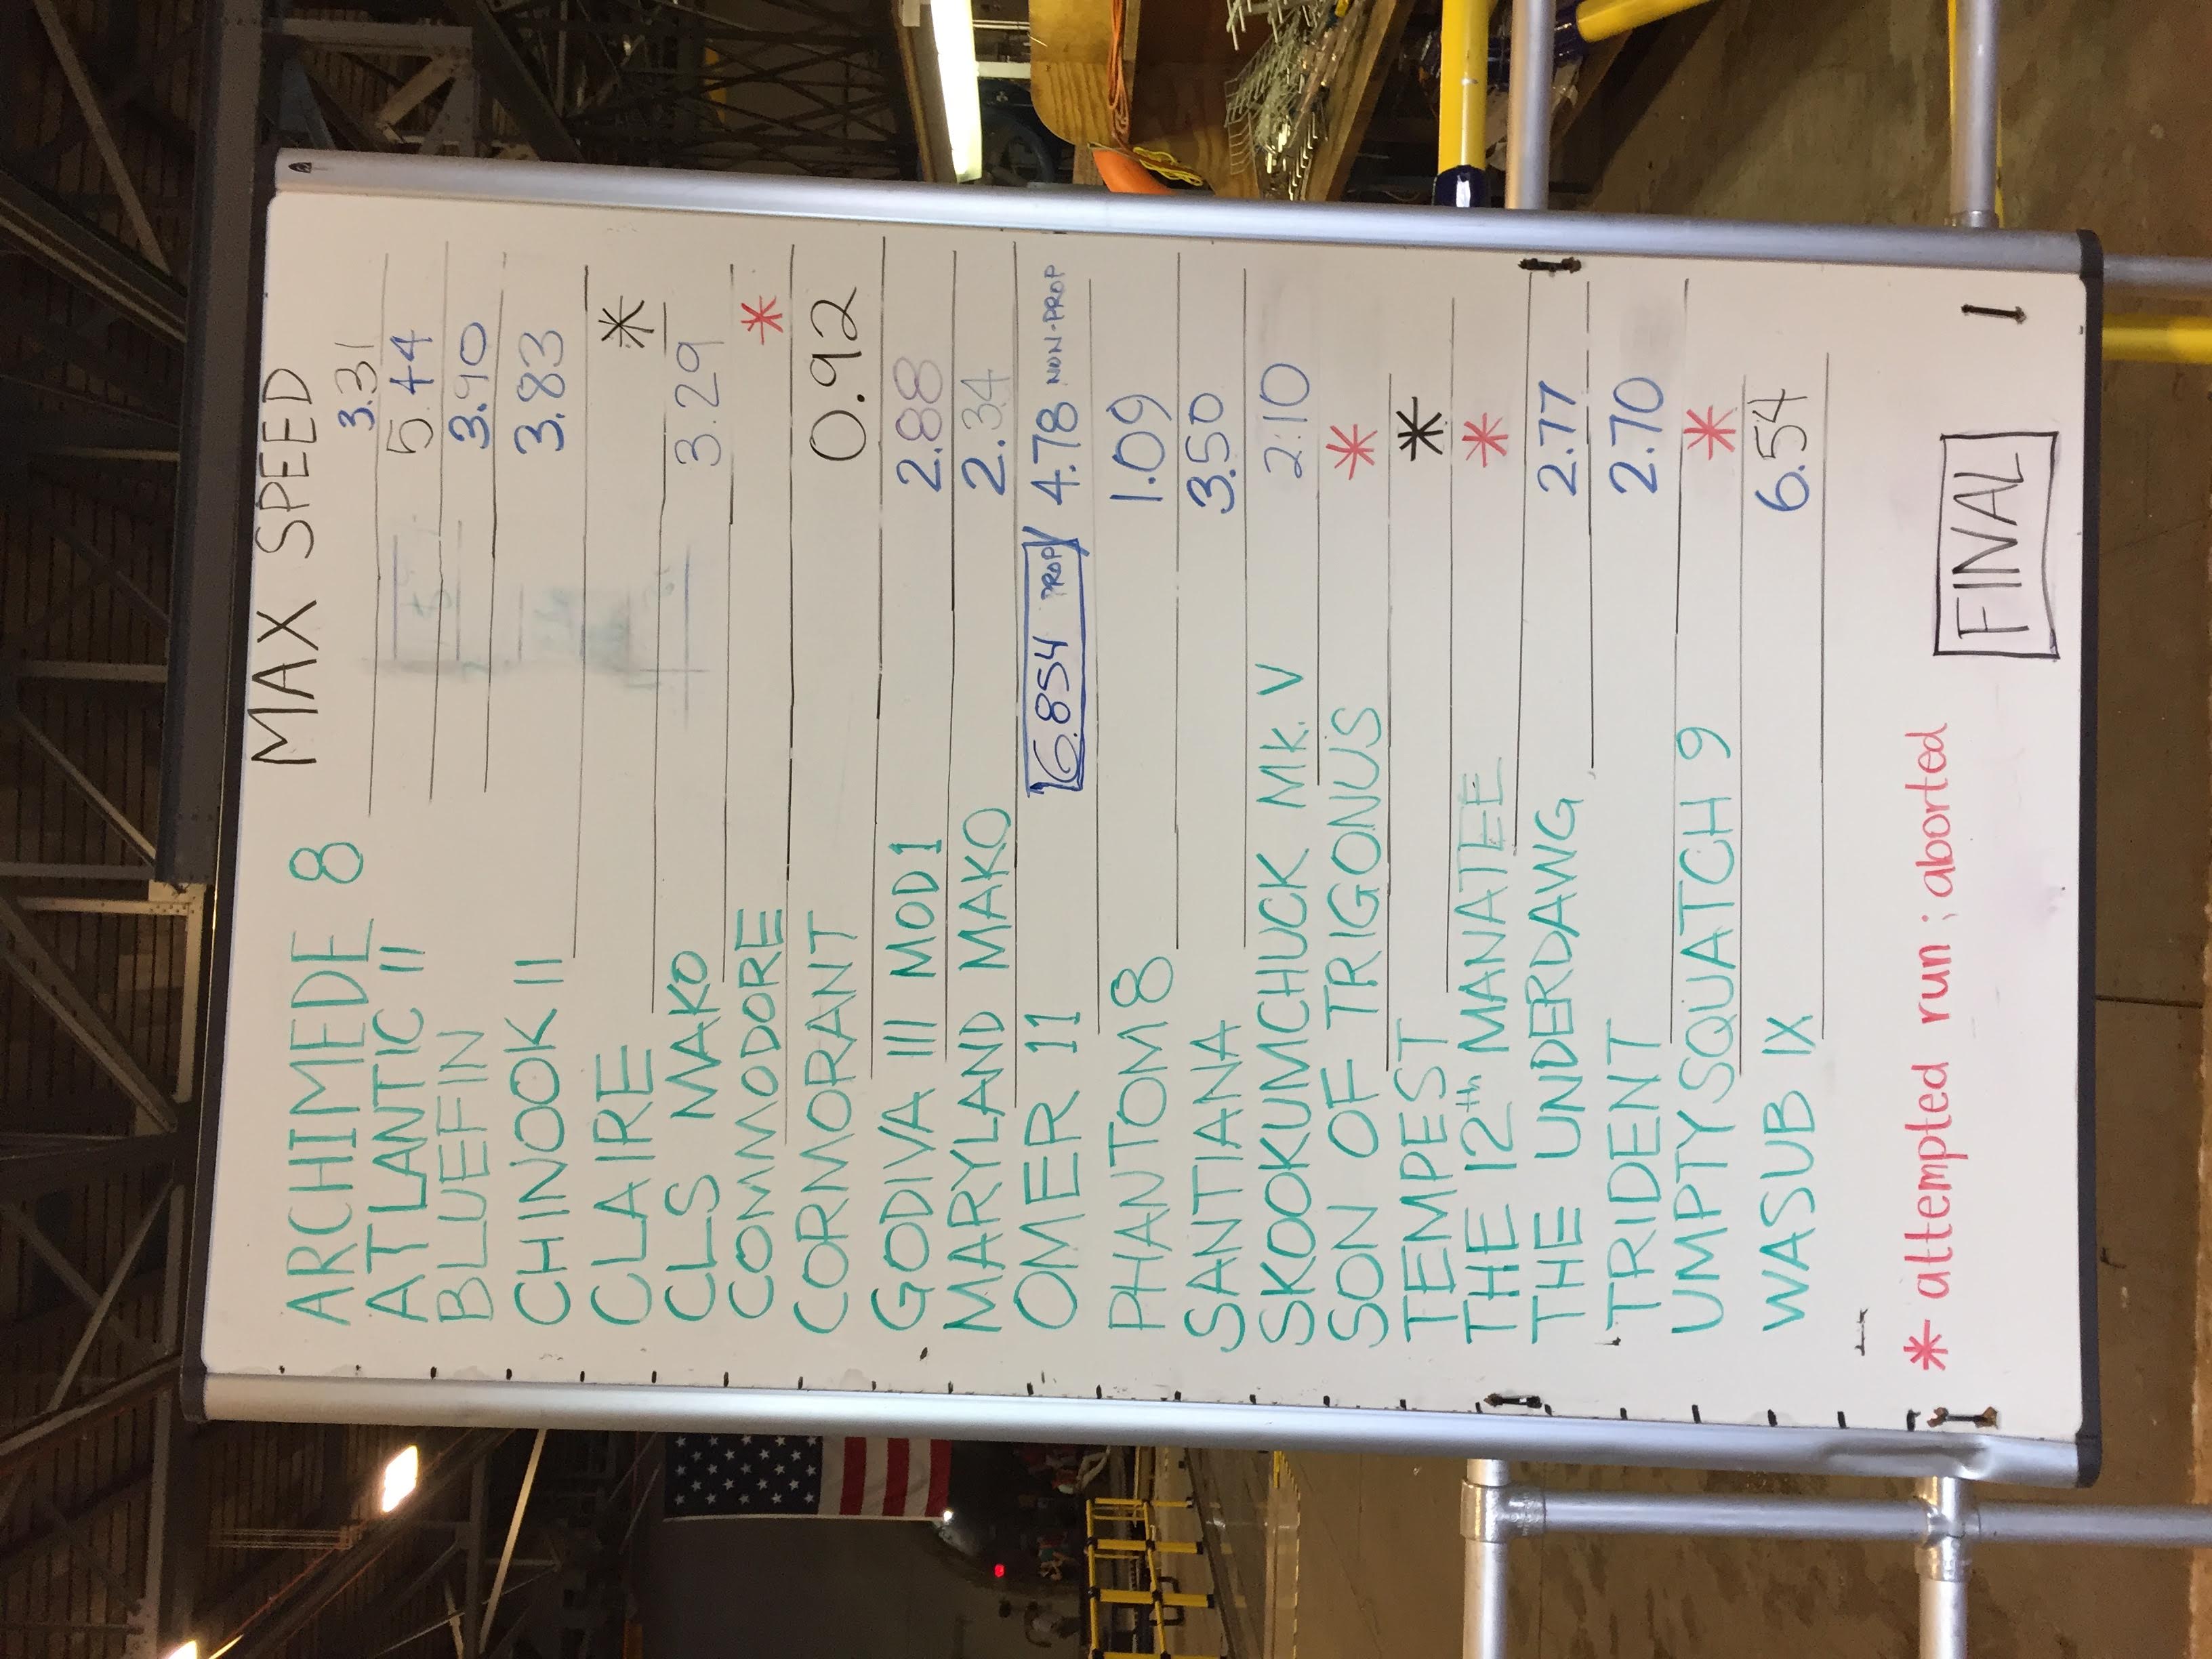 MAX SPEED
ARCHIMEDE 8 3.31
ATLANTIC II 5.44
BLUEFIN 3.90
CHINOOK II 3.83
CLAIRE *
CLS MAKO 3.29
COMMODORE *
CORMORANT 0.92
GODIVA III MOD1 2.88
MARYLAND MAKO 2.34
OMER 11 6.854 PROP / 4.78 NON-PROP
PHANTOM 8 1.09
SANTIANA 3.50
SKOOKUMCHUCK Mk. V 2.10
SON OF TRIGONUS *
TEMPEST *
THE 12th MANATEE *
THE UNDERDAWG 2.77
TRIDENT 2.70
UMPTYSQUATCH 9 *
WASUB IX 6.54
* attempted run ; aborted
FINAL